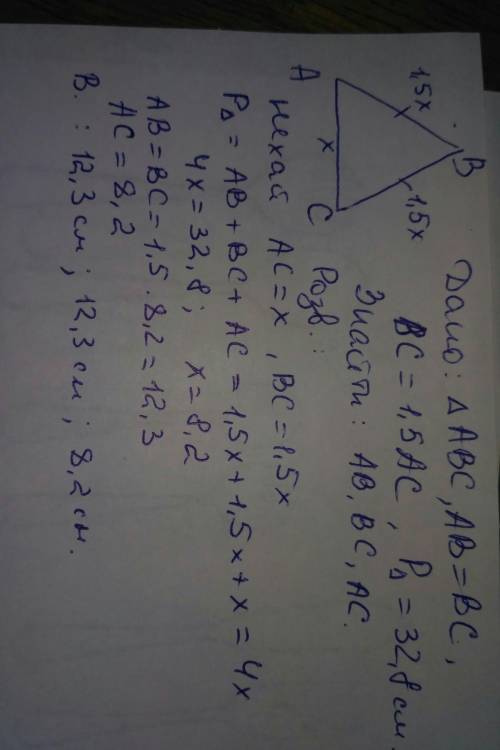 Дано: △ ABC, AB = BC,
BC = 1,5 AC, P△ = 32,8 см
Знайти: AB, BC, AC.
B
1,5x
1,5x
x
A
C
Розв.:
Нехай AC = x, BC = 1,5x
P△ = AB + BC + AC = 1,5x + 1,5x + x = 4x
4x = 32,8; x = 8,2
AB = BC = 1,5 · 8,2 = 12,3
AC = 8,2
В. : 12,3 см; 12,3 см; 8,2 см.